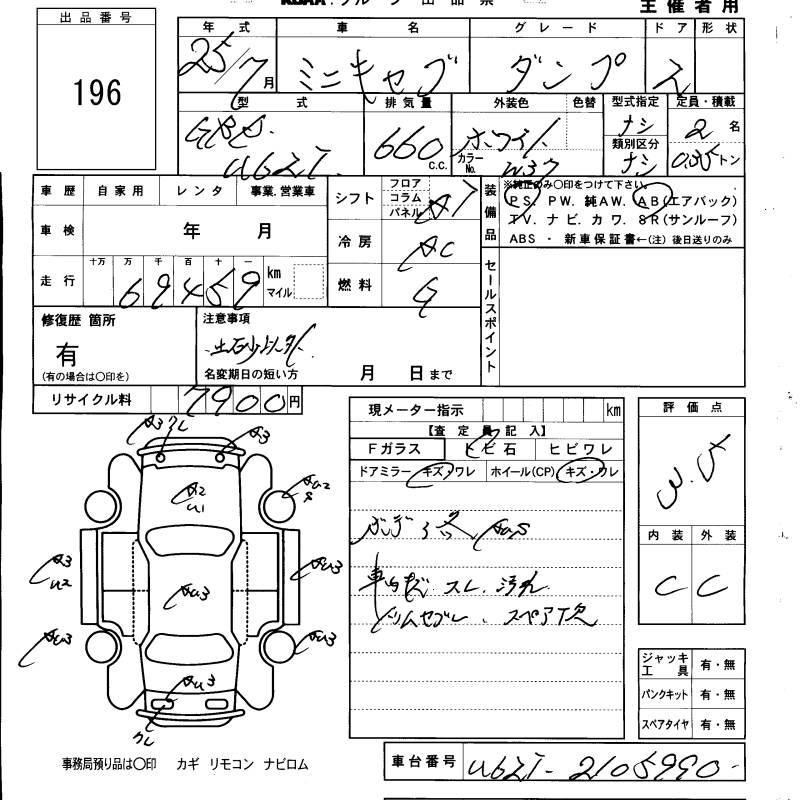 出品番号
主催者用
196
年式 車名 グレード ドア 形状
25/7月 ミニキャブ ダンプ 2
型式 排気量 外装色 色替 型式指定 定員・積載
GBD-U62T 660 c.c. ホワイト ナシ 2名
カラーNo. W37 類別区分 ナシ 0.35トン
車歴 自家用 レンタ 事業.営業車
シフト フロア コラム パネル AT
装備品 ※純正のみ〇印をつけて下さい。
PS. PW. 純AW. AB(エアバック)
TV. ナビ. カワ. SR(サンルーフ)
ABS ・ 新車保証書←(注)後日送りのみ
車検 年 月
冷房 AC
走行 十万 万 千 百 十 一 km マイル
69459
燃料 G
セールスポイント
修復歴 箇所 注意事項
有 土砂以外
(有の場合は〇印を) 名変期日の短い方 月 日まで
リサイクル料 7900円
現メーター指示 km
【査定員記入】
Fガラス トビ石 ヒビワレ
ドアミラー キズ・ワレ ホイール(CP) キズ・ワレ
評価点
3.5
内装 外装
C C
A3 ワレ A3
A2 U1
AU2 S
A3 U2
AU3
AU3
AU3
AU3
AU3
ワレ
スレ.汚れ
スペアT欠
ジャッキ工具 有・無
パンクキット 有・無
スペアタイヤ 有・無
事務局預り品は〇印 カギ リモコン ナビロム
車台番号 U62T-2105990